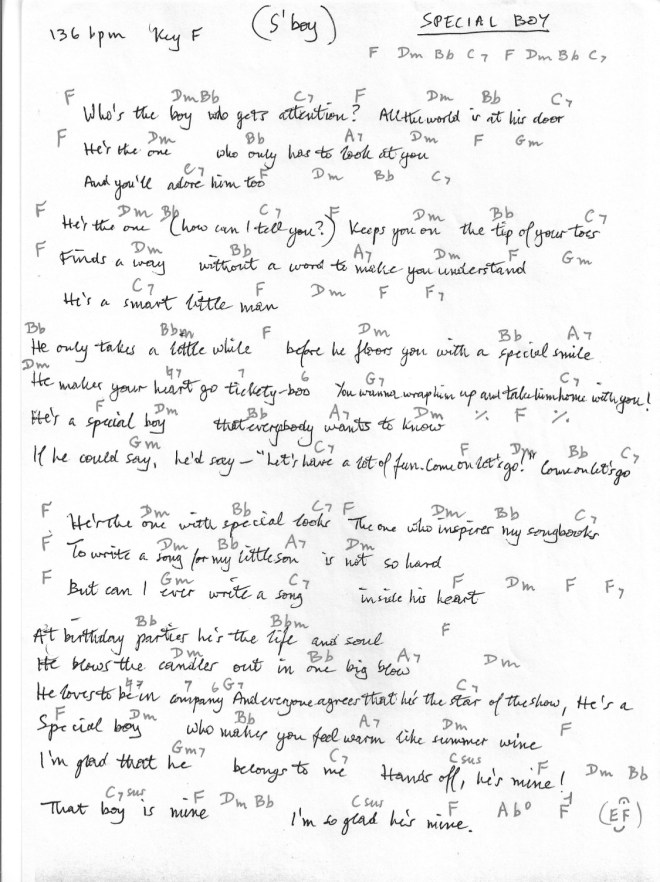 136 bpm Key F (S'boy) SPECIAL BOY
F Dm Bb C7 F Dm Bb C7
F Dm Bb C7 F Dm Bb C7
Who's the boy who gets attention? All the world is at his door
F Dm Bb A7 Dm F Gm
He's the one who only has to look at you
C7 F Dm Bb C7
And you'll adore him too
F Dm Bb C7 F Dm Bb C7
He's the one (how can I tell you?) Keeps you on the tip of your toes
F Dm Bb A7 Dm F Gm
Finds a way without a word to make you understand
C7 F Dm F F7
He's a smart little man
Bb Bbm F Dm Bb A7
He only takes a little while before he floors you with a special smile
Dm ♮7 7 6 G7 C7
He makes your heart go tickety-boo You wanna wrap him up and take him home with you!
F Dm Bb A7 Dm % F %
He's a special boy that everybody wants to know
Gm C7 F Dm Bb C7
If he could say, he'd say - "Let's have a lot of fun. Come on let's go!" Come on let's go
F Dm Bb C7 F Dm Bb C7
He's the one with special looks The one who inspires my songbooks
F Dm Bb A7 Dm
To write a song for my little son is not so hard
F Gm C7 F Dm F F7
But can I ever write a song inside his heart
Bb Bbm F
At birthday parties he's the life and soul
Dm Bb A7 Dm
He blows the candles out in one big blow
♮7 7 6 G7 C7
He loves to be in company And everyone agrees that he's the star of the show, He's a
F Dm Bb A7 Dm F
Special boy who makes you feel warm like summer wine
Gm7 C7 Csus F Dm Bb
I'm glad that he belongs to me Hands off, he's mine!
C7sus F Dm Bb Csus F Ab° F (EF)
That boy is mine I'm so glad he's mine.